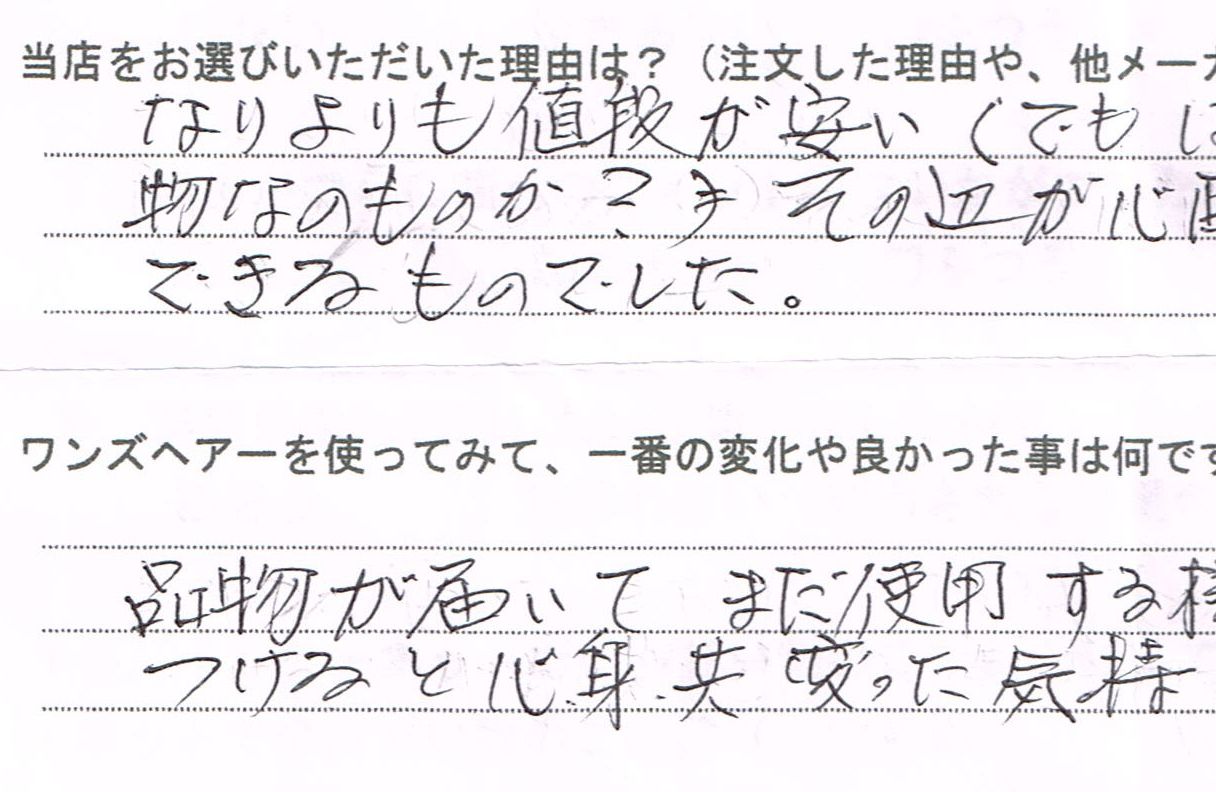 当店をお選びいただいた理由は?（注文した理由や、他メーカ
なりよりも値段が安いくでも
物なのものか その辺が心
できるものでした。
ワンズヘアーを使ってみて、一番の変化や良かった事は何です
品物が届いて まだ使用する様
つけると心身共変った気持